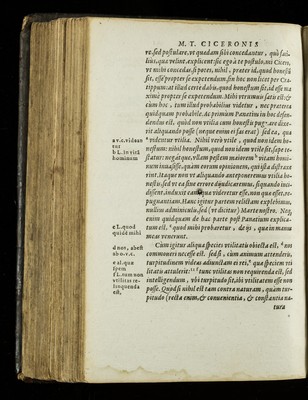 M. T. CICERONIS
re. sed postulare, vt quædam sibi concedantur, quò faci-
lius, quæ velint, explicent: sic ego à te postulo, mi Cicero,
vt mihi concedas, si potes, nihil, præter id, quod honestū
sit, esse propter se expetendum. sin hoc non licet per Cra-
tippum: at illud certè dabis, quod honestum sit, id esse ma
ximè propter se expetendum. Mihi vtrumuis satis est: &
cùm hoc, tum illud probabilius videtur, nec præterea
quidquam probabile. Ac primum Panætius in hoc defen-
dendus est. quòd non vtilia cum honestis pugnare dice-
ret aliquando posse (neque enim ei fas erat) sed ea, quæ
a videretur vtilia. Nihil verò vtile, quod non idem ho-
nestum: nihil honestum, quod non idem vtile sit, sæpe te-
statur: negátque, vllam pestem maiorem b vitam homi-
num inuasisse, quàm eorum opinionem, qui ista distraxe
rint. Itaque non vt aliquando anteponeremus vtilia ho-
nestis, sed vt ea sine errore diiudicaremus, si quando inci-
dissent, induxit eam, quæ videretur esse, non quæ esset, re-
pugnantiam. Hanc igitur partem relictam explebimus,
nullius adminiculis, sed (vt dicitur) Marte nostro. Neq;
enim quidquam de hac parte post Panætium explica-
tum est, c quod mihi probaretur, de ijs, quæ in manus
meas venerunt.
Cùm igitur aliqua species vtilitatis obiecta est, d nos
commoueri necesse est. sed si, cùm animum attenderis,
turpitudinem videas adiunctam ei rei, e quæ speciem vti
litatis attulerit: f tunc vtilitas non requirenda est, sed
intelligendum, vbi turpitudo sit, ibi vtilitatem esse non
posse. Quòd si nihil est tam contra naturam, quàm tur-
pitudo (recta enim, & conuenientia, & constantia na-
tura
a v. c. videan
tur
b L. in vitā
hominum
c L. quod
quidē mihi
d nos, abest
ab o. v. c.